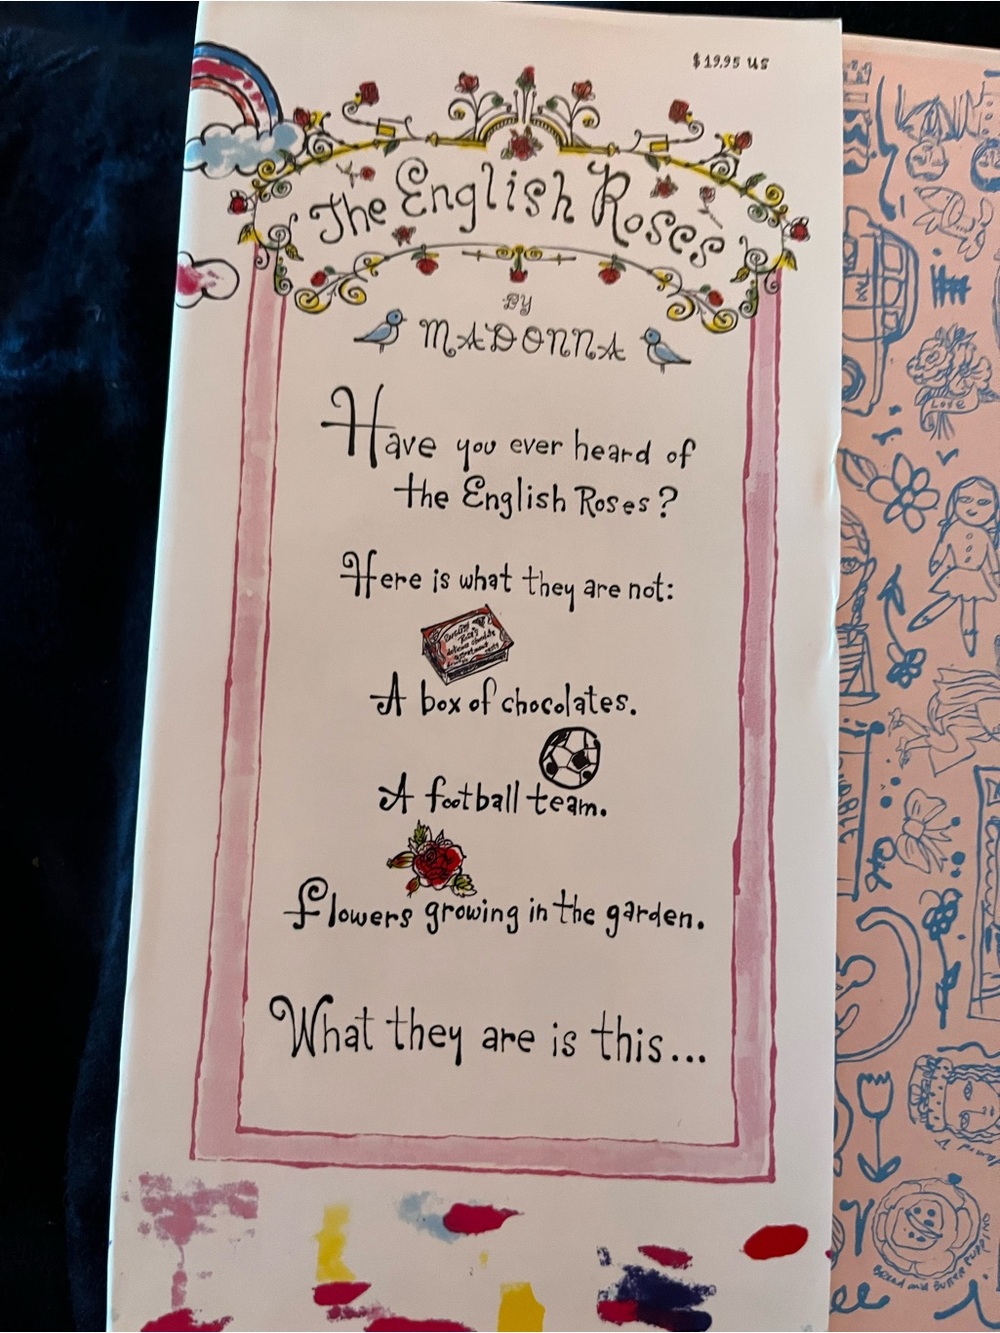 $19.95 US
The English Roses
BY
MADONNA
Have you ever heard of
the English Roses?
Here is what they are not:
A box of chocolates.
A football team.
Flowers growing in the garden.
What they are is this...
LOVE
BREAD and BUTTER PUDDING